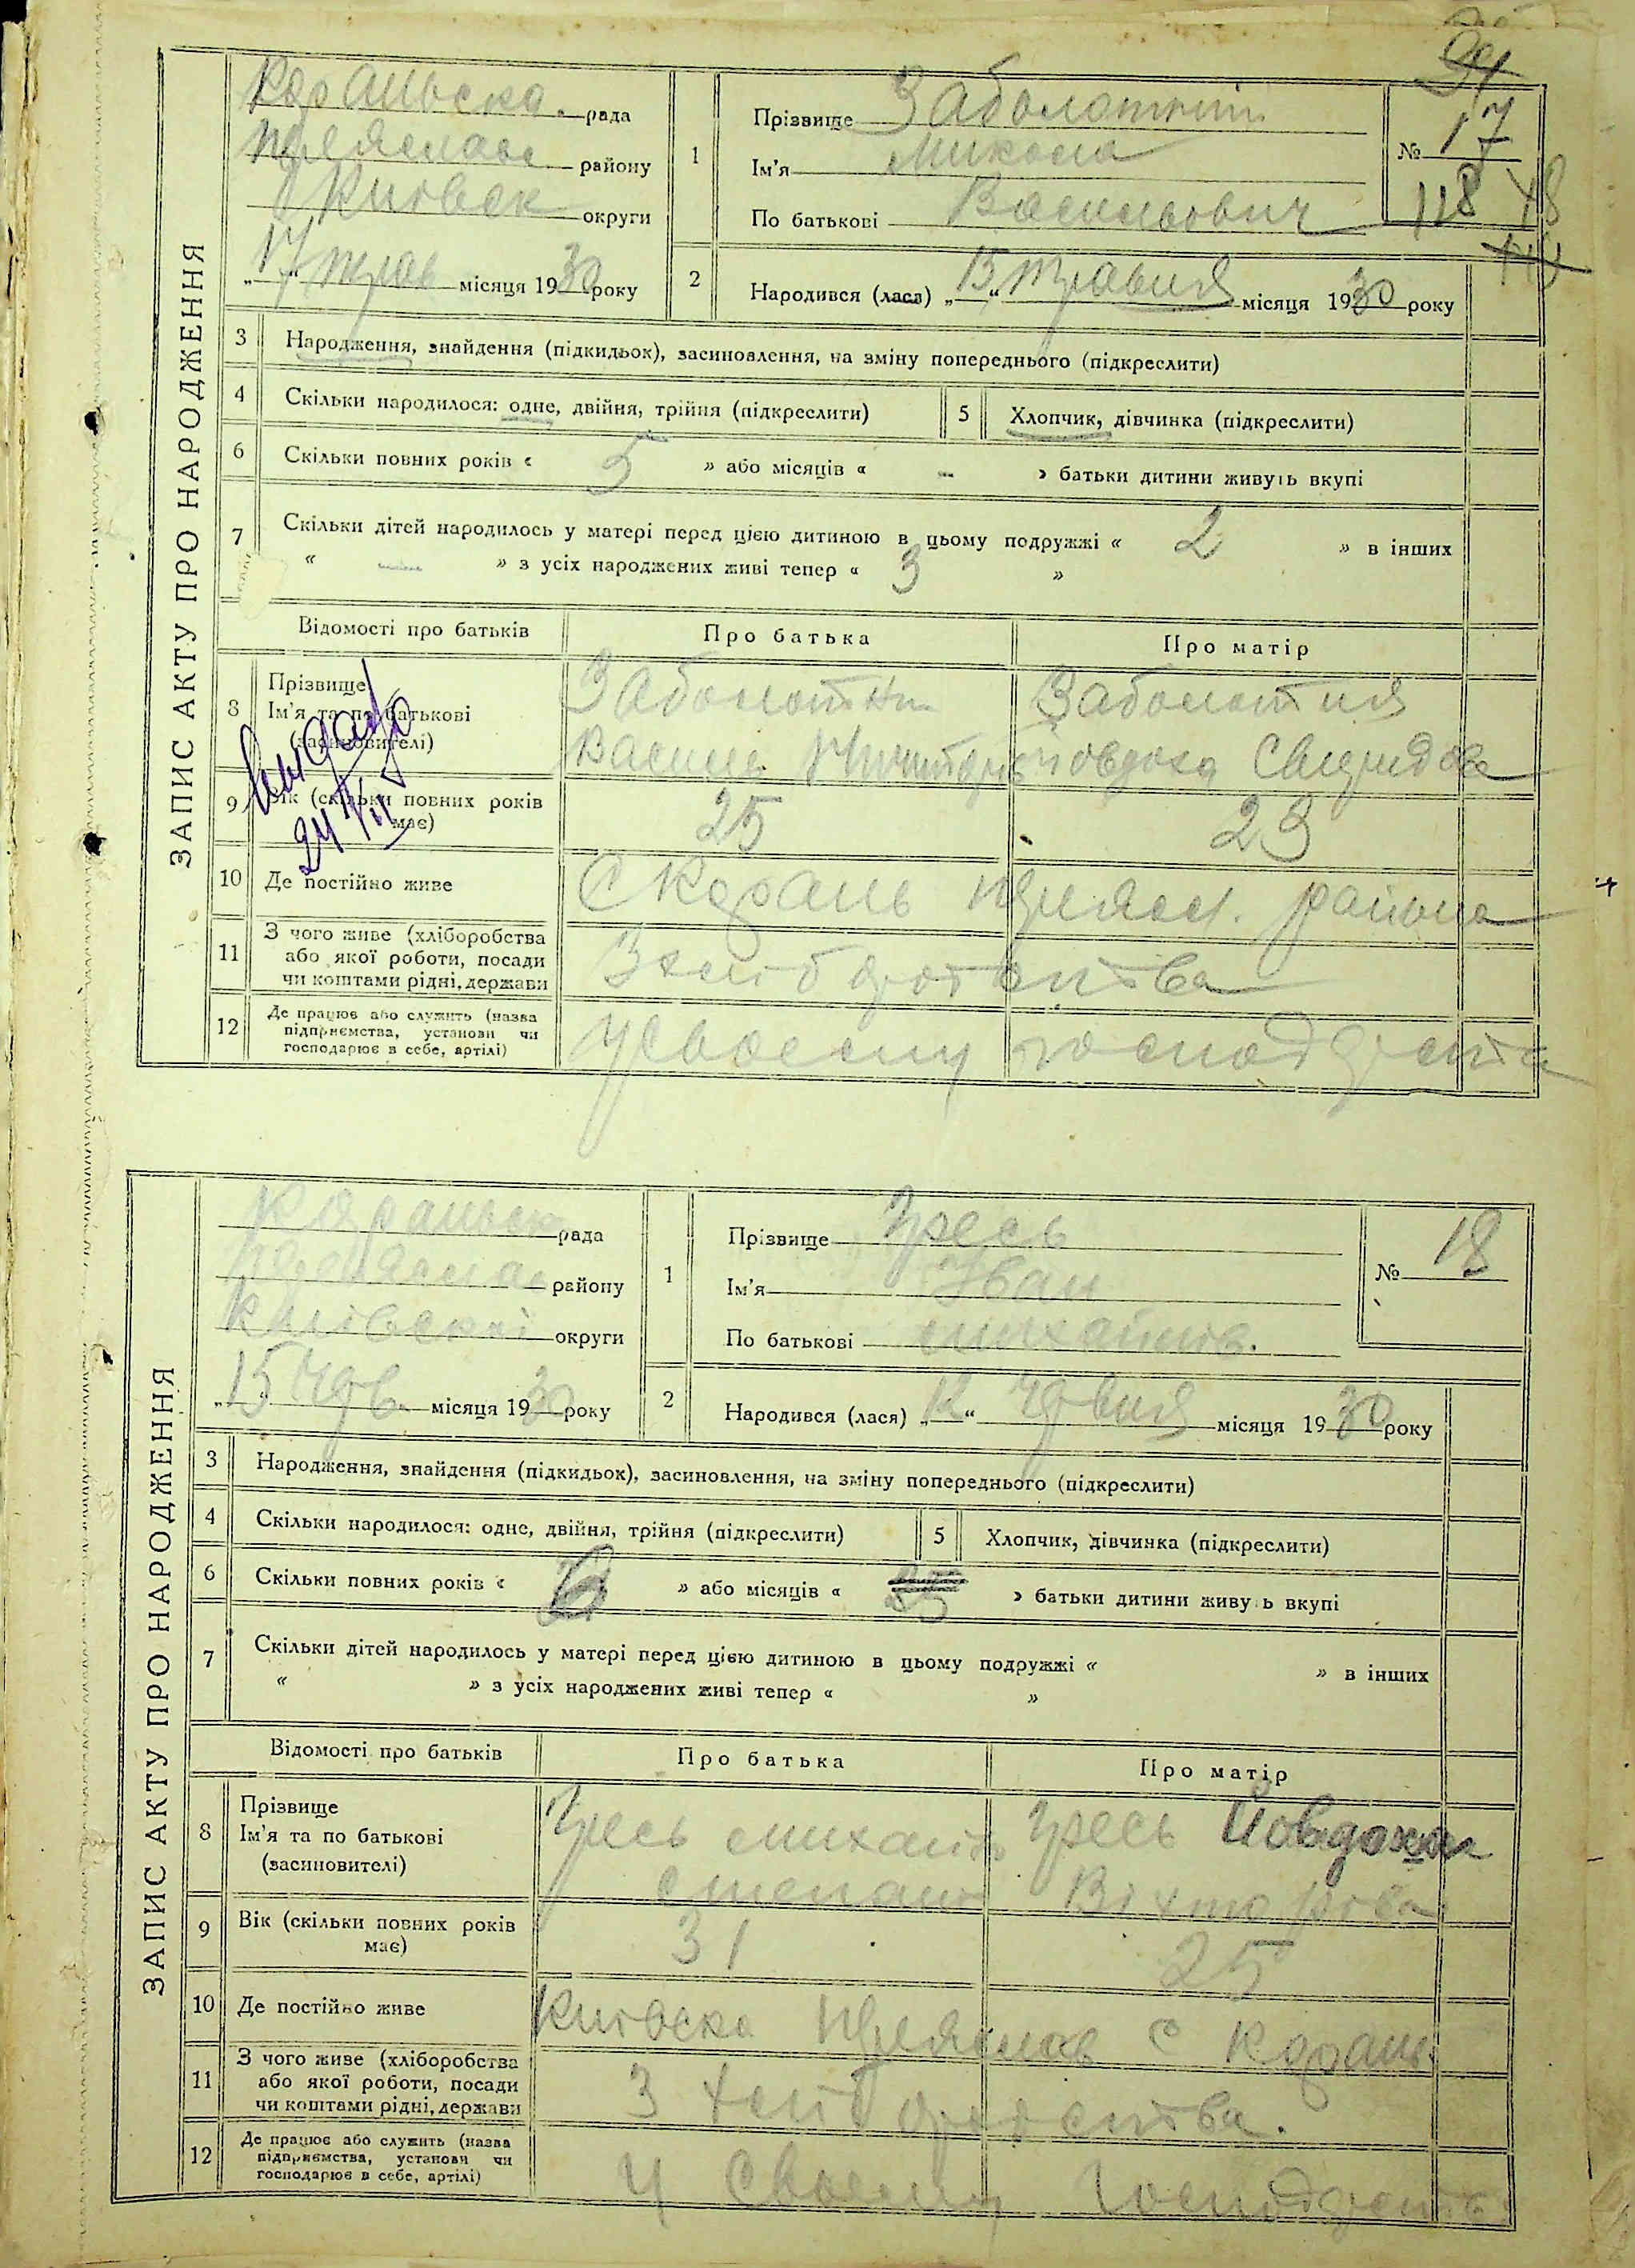 ЗАПИС АКТУ ПРО НАРОДЖЕННЯ
Каранська рада
району
Київськ округи
„17“ трав місяця 1930 року
1
Прізвище Заболотний
Ім'я Микола
По батькові Васильович
№ 17
118
2
Народився (лася) „15“ травня місяця 1930 року
3 Народження, знайдення (підкидьок), засиновлення, на зміну попереднього (підкреслити)
4 Скільки народилося: одне, двійня, трійня (підкреслити)
5 Хлопчик, дівчинка (підкреслити)
6 Скільки повних років « 5 » або місяців « - » батьки дитини живуть вкупі
7 Скільки дітей народилось у матері перед цією дитиною в цьому подружжі « 2 » в інших
« — » з усіх народжених живі тепер « 3 »
Відомості про батьків Про батька Про матір
8 Прізвище
Ім'я та по батькові
(засиновителі)
Заболотни
Василь
Заболотня
Йовдоха Свиридов
9 Вік (скільки повних років
має)
25 23
10 Де постійно живе
С Карань Переясл. району
11 З чого живе (хліборобства
або якої роботи, посади
чи коштами рідні, держави
З хліборобства
12 Де працює або служить (назва
підприємства, установи чи
господарює в себе, артілі)
У своєму
ЗАПИС АКТУ ПРО НАРОДЖЕННЯ
Каранськ рада
району
Київської округи
„15“ черв. місяця 1930 року
1
Прізвище Гресь
Ім'я Іван
По батькові Михайлів.
№ 18
2
Народився (лася) „12“ червня місяця 1930 року
3 Народження, знайдення (підкидьок), засиновлення, на зміну попереднього (підкреслити)
4 Скільки народилося: одне, двійня, трійня (підкреслити)
5 Хлопчик, дівчинка (підкреслити)
6 Скільки повних років « » або місяців « » батьки дитини живуть вкупі
7 Скільки дітей народилось у матері перед цією дитиною в цьому подружжі « » в інших
« » з усіх народжених живі тепер « »
Відомості про батьків Про батька Про матір
8 Прізвище
Ім'я та по батькові
(засиновителі)
Гресь Михайло
Степанов
Гресь Йовдоха
Віхторова
9 Вік (скільки повних років
має)
31 25
10 Де постійно живе
Київська Переяслав с Карань
11 З чого живе (хліборобства
або якої роботи, посади
чи коштами рідні, держави
З хліборобства.
12 Де працює або служить (назва
підприємства, установи чи
господарює в себе, артілі)
У своєму